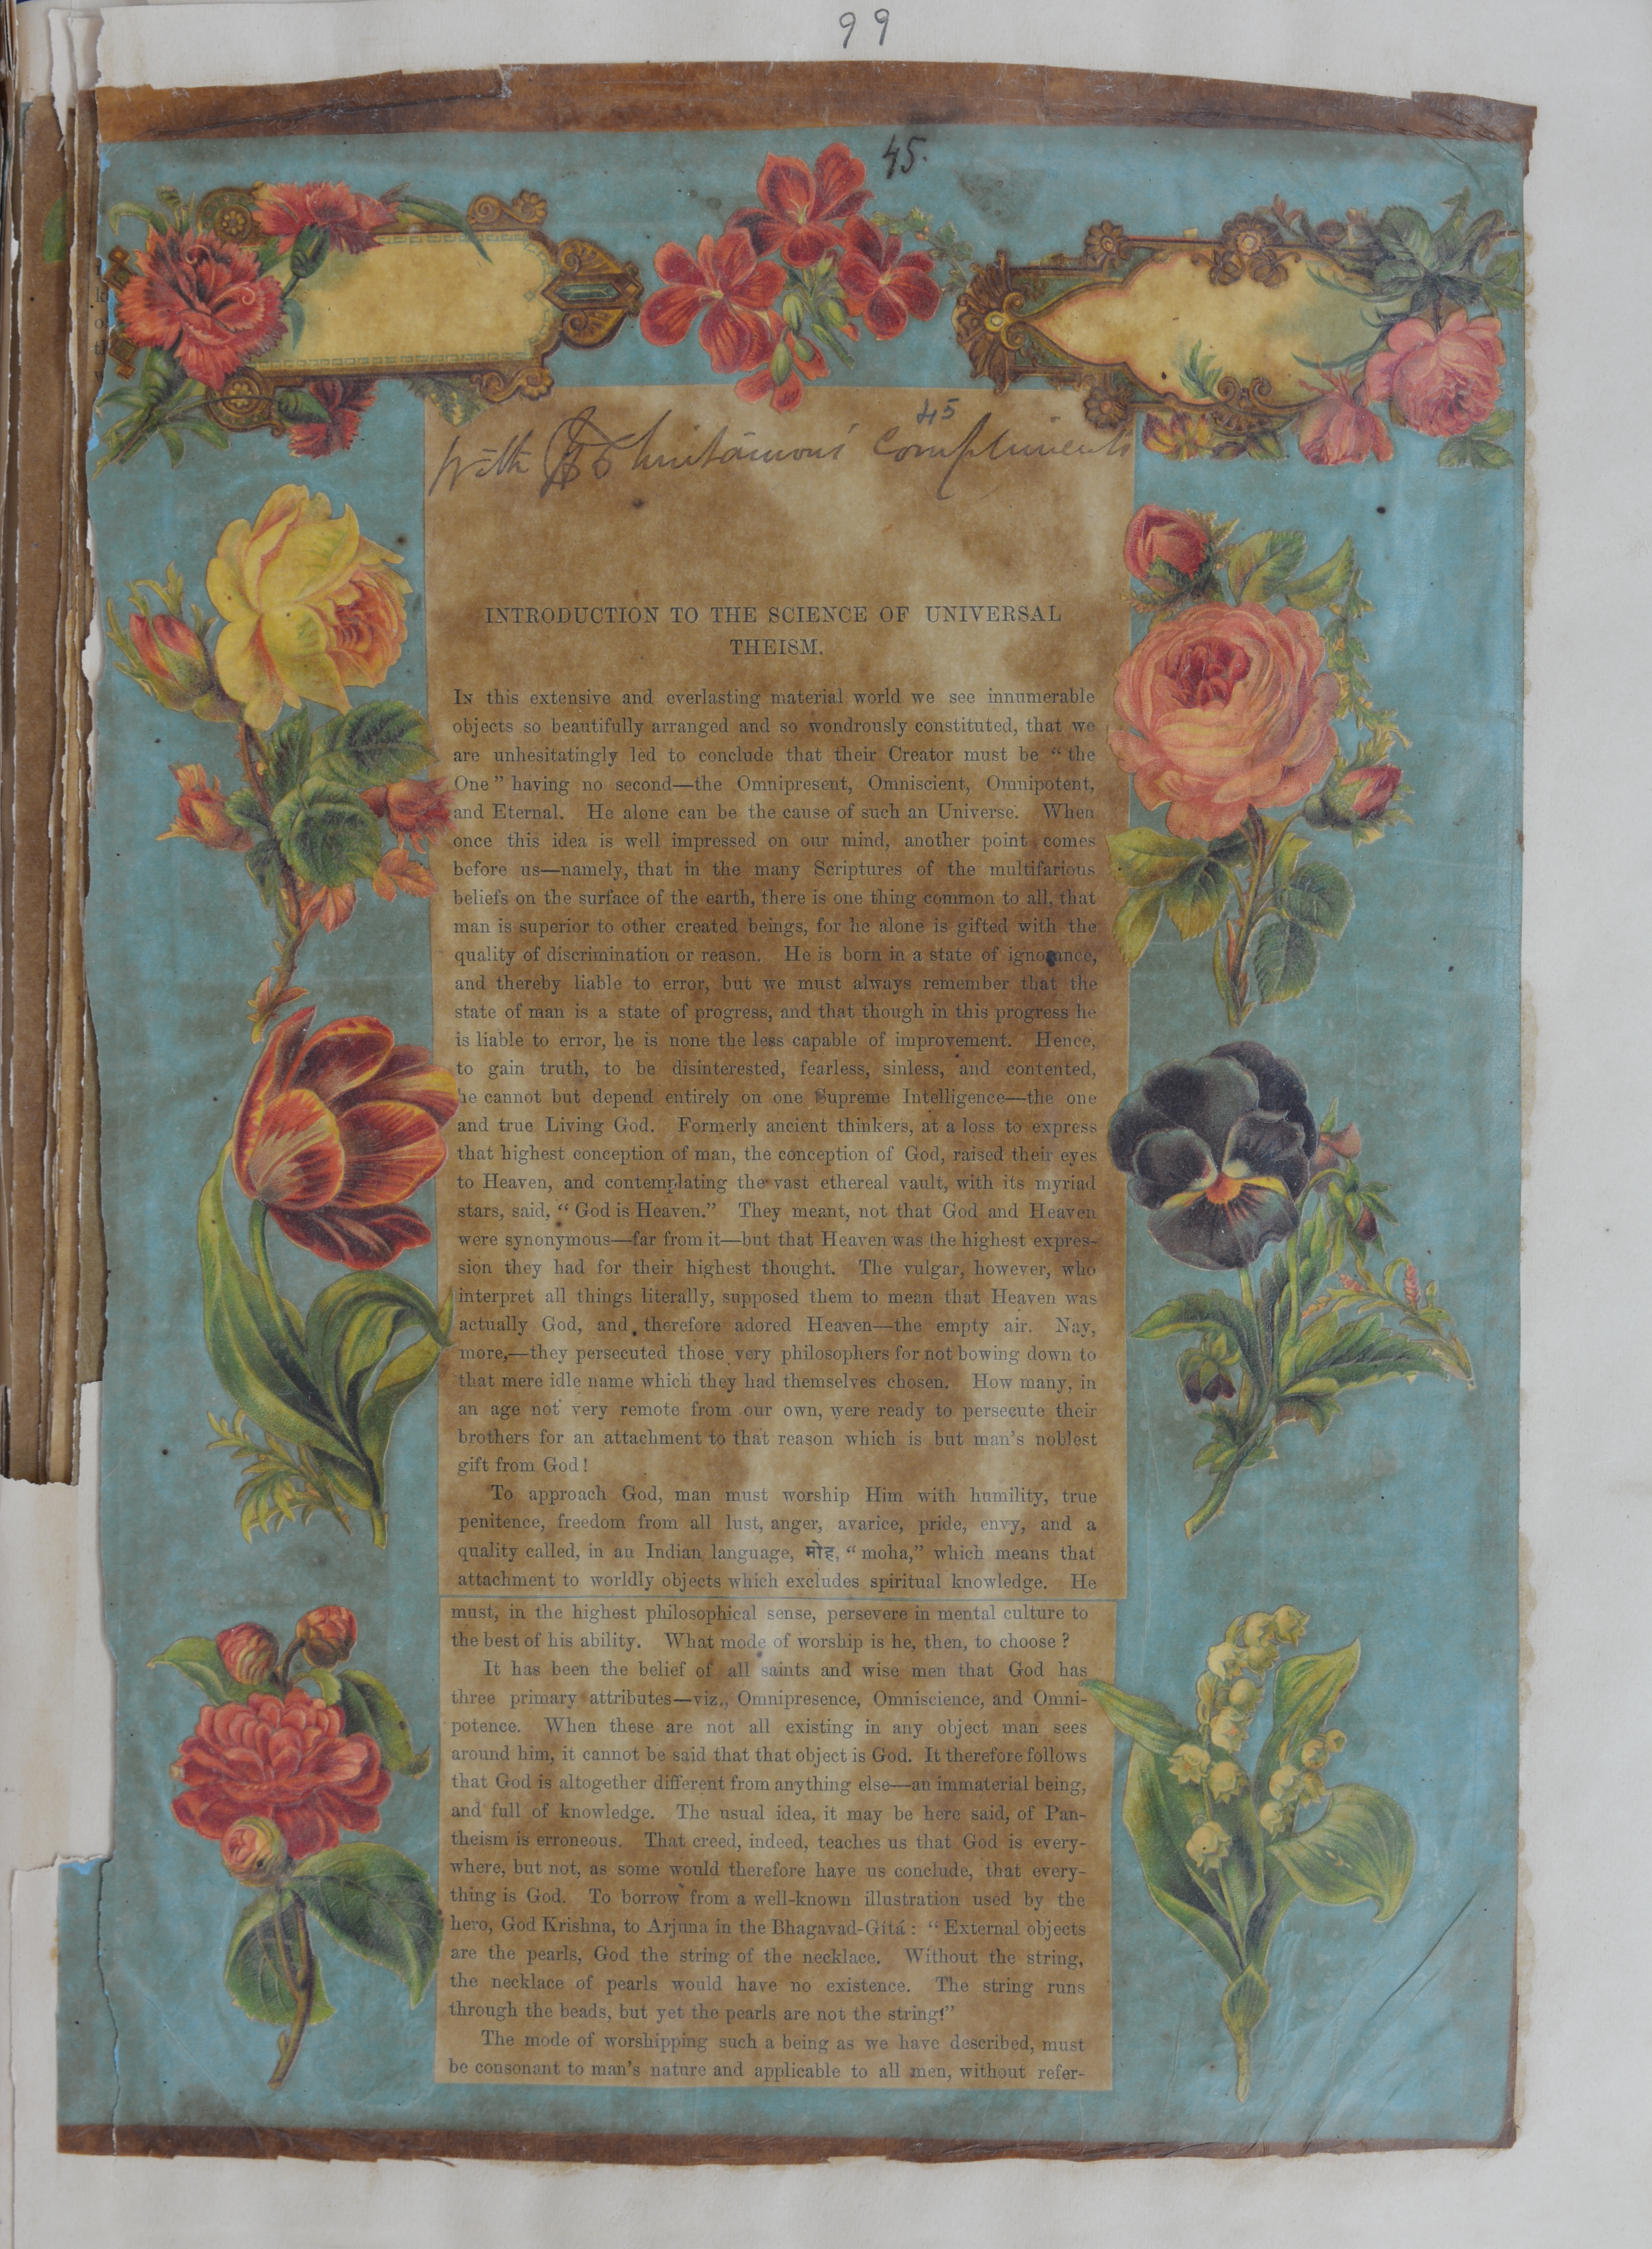 99
45.
45
With Chintamon's Compliments
INTRODUCTION TO THE SCIENCE OF UNIVERSAL
THEISM.
IN this extensive and everlasting material world we see innumerable
objects so beautifully arranged and so wondrously constituted, that we
are unhesitatingly led to conclude that their Creator must be “the
One” having no second—the Omnipresent, Omniscient, Omnipotent,
and Eternal. He alone can be the cause of such an Universe. When
once this idea is well impressed on our mind, another point comes
before us—namely, that in the many Scriptures of the multifarious
beliefs on the surface of the earth, there is one thing common to all, that
man is superior to other created beings, for he alone is gifted with the
quality of discrimination or reason. He is born in a state of ignorance,
and thereby liable to error, but we must always remember that the
state of man is a state of progress, and that though in this progress he
is liable to error, he is none the less capable of improvement. Hence,
to gain truth, to be disinterested, fearless, sinless, and contented,
he cannot but depend entirely on one Supreme Intelligence—the one
and true Living God. Formerly ancient thinkers, at a loss to express
that highest conception of man, the conception of God, raised their eyes
to Heaven, and contemplating the vast ethereal vault, with its myriad
stars, said, “God is Heaven.” They meant, not that God and Heaven
were synonymous—far from it—but that Heaven was the highest expres-
sion they had for their highest thought. The vulgar, however, who
interpret all things literally, supposed them to mean that Heaven was
actually God, and therefore adored Heaven—the empty air. Nay,
more,—they persecuted those very philosophers for not bowing down to
that mere idle name which they had themselves chosen. How many, in
an age not very remote from our own, were ready to persecute their
brothers for an attachment to that reason which is but man's noblest
gift from God!
To approach God, man must worship Him with humility, true
penitence, freedom from all lust, anger, avarice, pride, envy, and a
quality called, in an Indian language, मोह, “moha,” which means that
attachment to worldly objects which excludes spiritual knowledge. He
must, in the highest philosophical sense, persevere in mental culture to
the best of his ability. What mode of worship is he, then, to choose?
It has been the belief of all saints and wise men that God has
three primary attributes—viz., Omnipresence, Omniscience, and Omni-
potence. When these are not all existing in any object man sees
around him, it cannot be said that that object is God. It therefore follows
that God is altogether different from anything else—an immaterial being,
and full of knowledge. The usual idea, it may be here said, of Pan-
theism is erroneous. That creed, indeed, teaches us that God is every-
where, but not, as some would therefore have us conclude, that every-
thing is God. To borrow from a well-known illustration used by the
hero, God Krishna, to Arjuna in the Bhagavad-Gítá: “External objects
are the pearls, God the string of the necklace. Without the string,
the necklace of pearls would have no existence. The string runs
through the beads, but yet the pearls are not the string!”
The mode of worshipping such a being as we have described, must
be consonant to man's nature and applicable to all men, without refer-